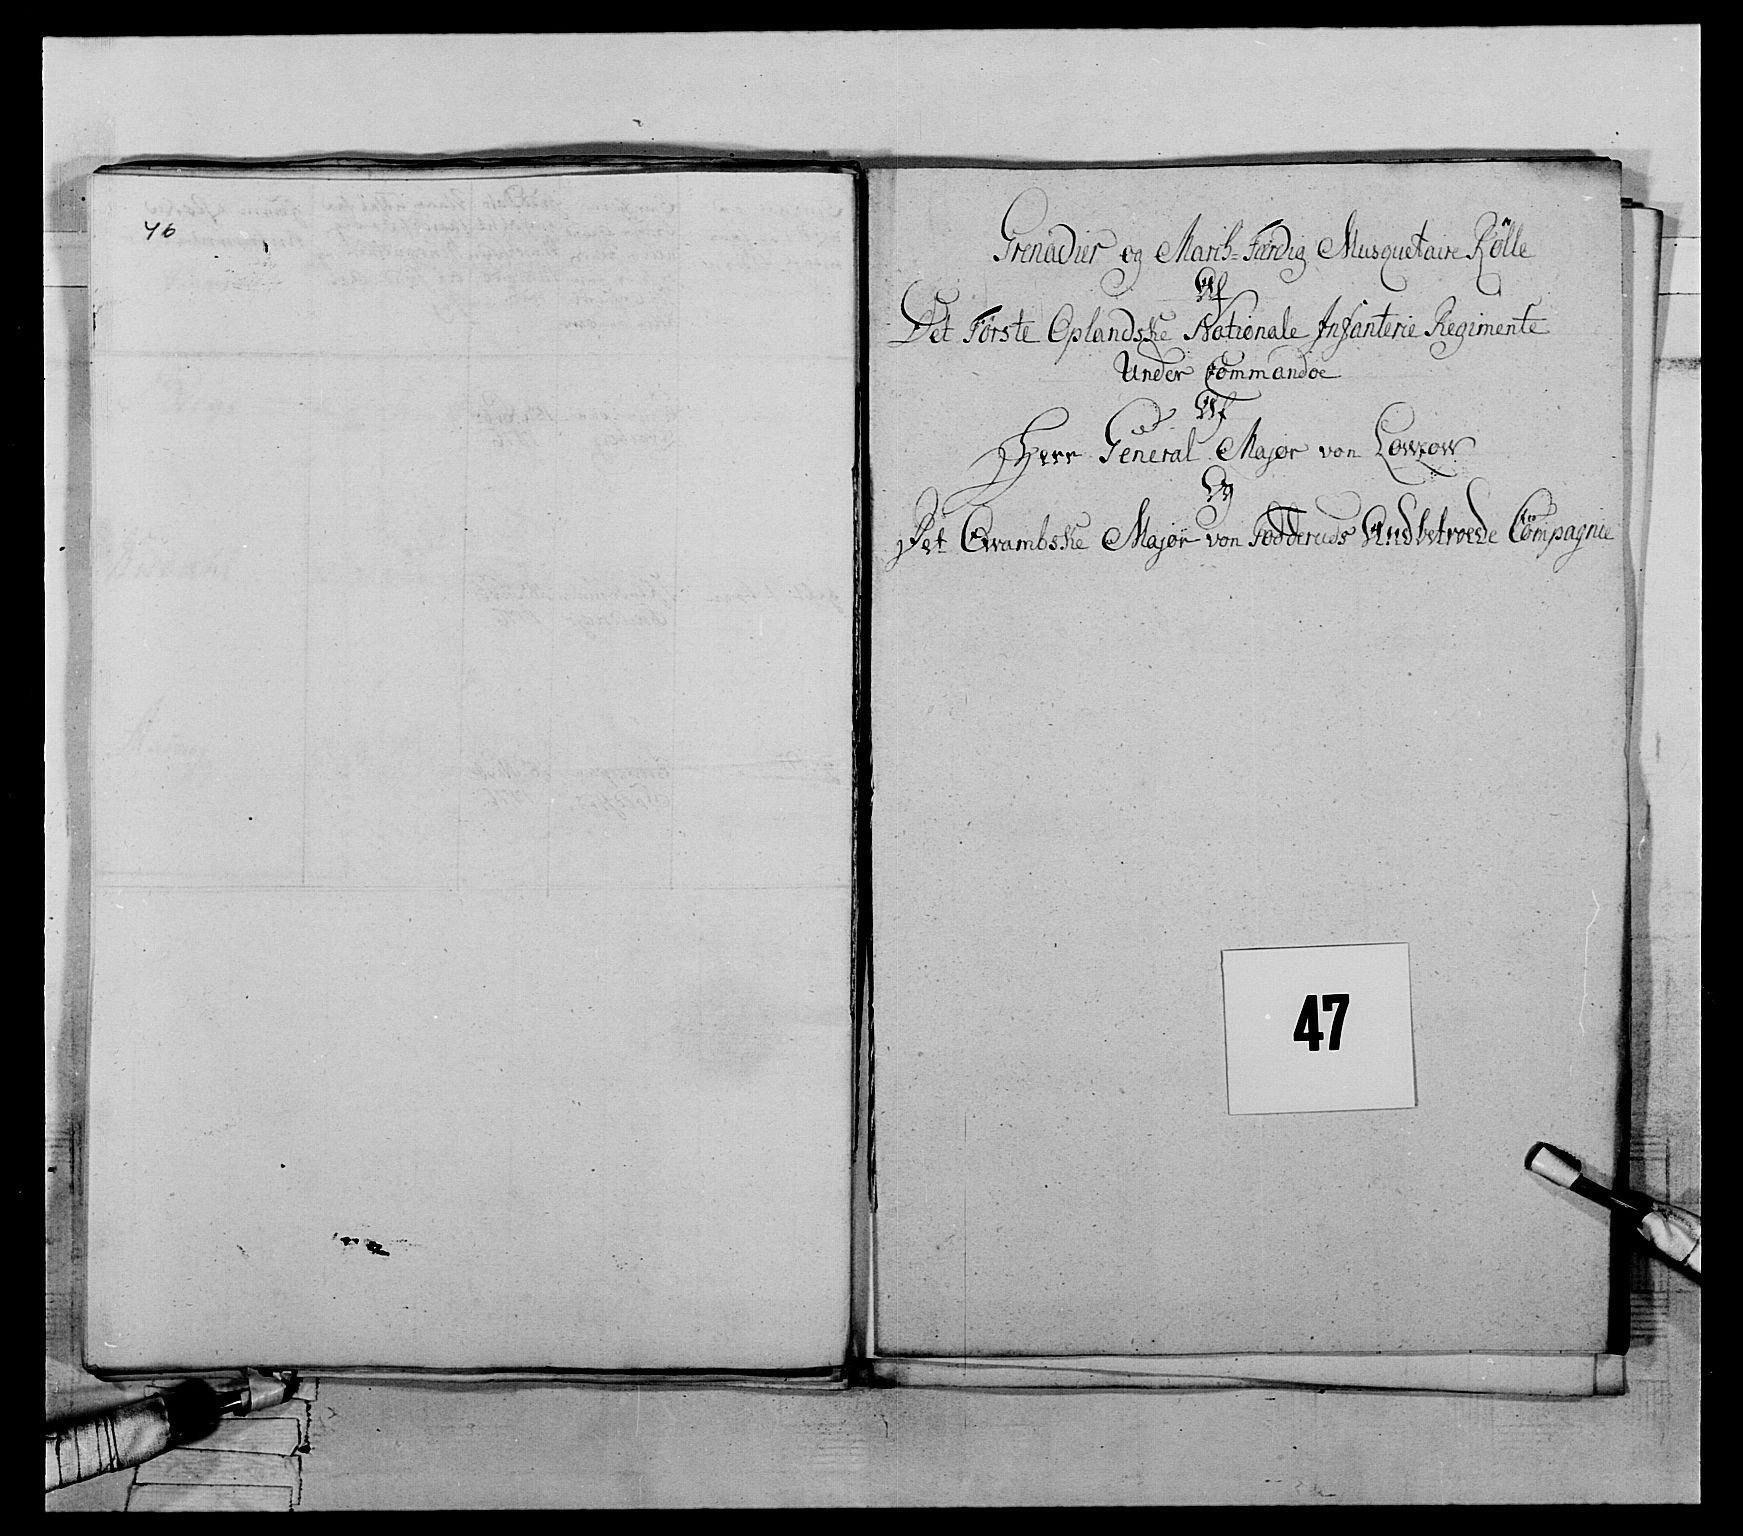 46
Grenadier og Marsh-Færdig Musquetaire Rölle
Af
Det Förste Oplandske Nationale Infanterie Regimente
Under Commandoe
Af
Herr General Major von Lowzow
Og
Det Qvambske Major von Fodderuds Andbetroede Compagnie
47